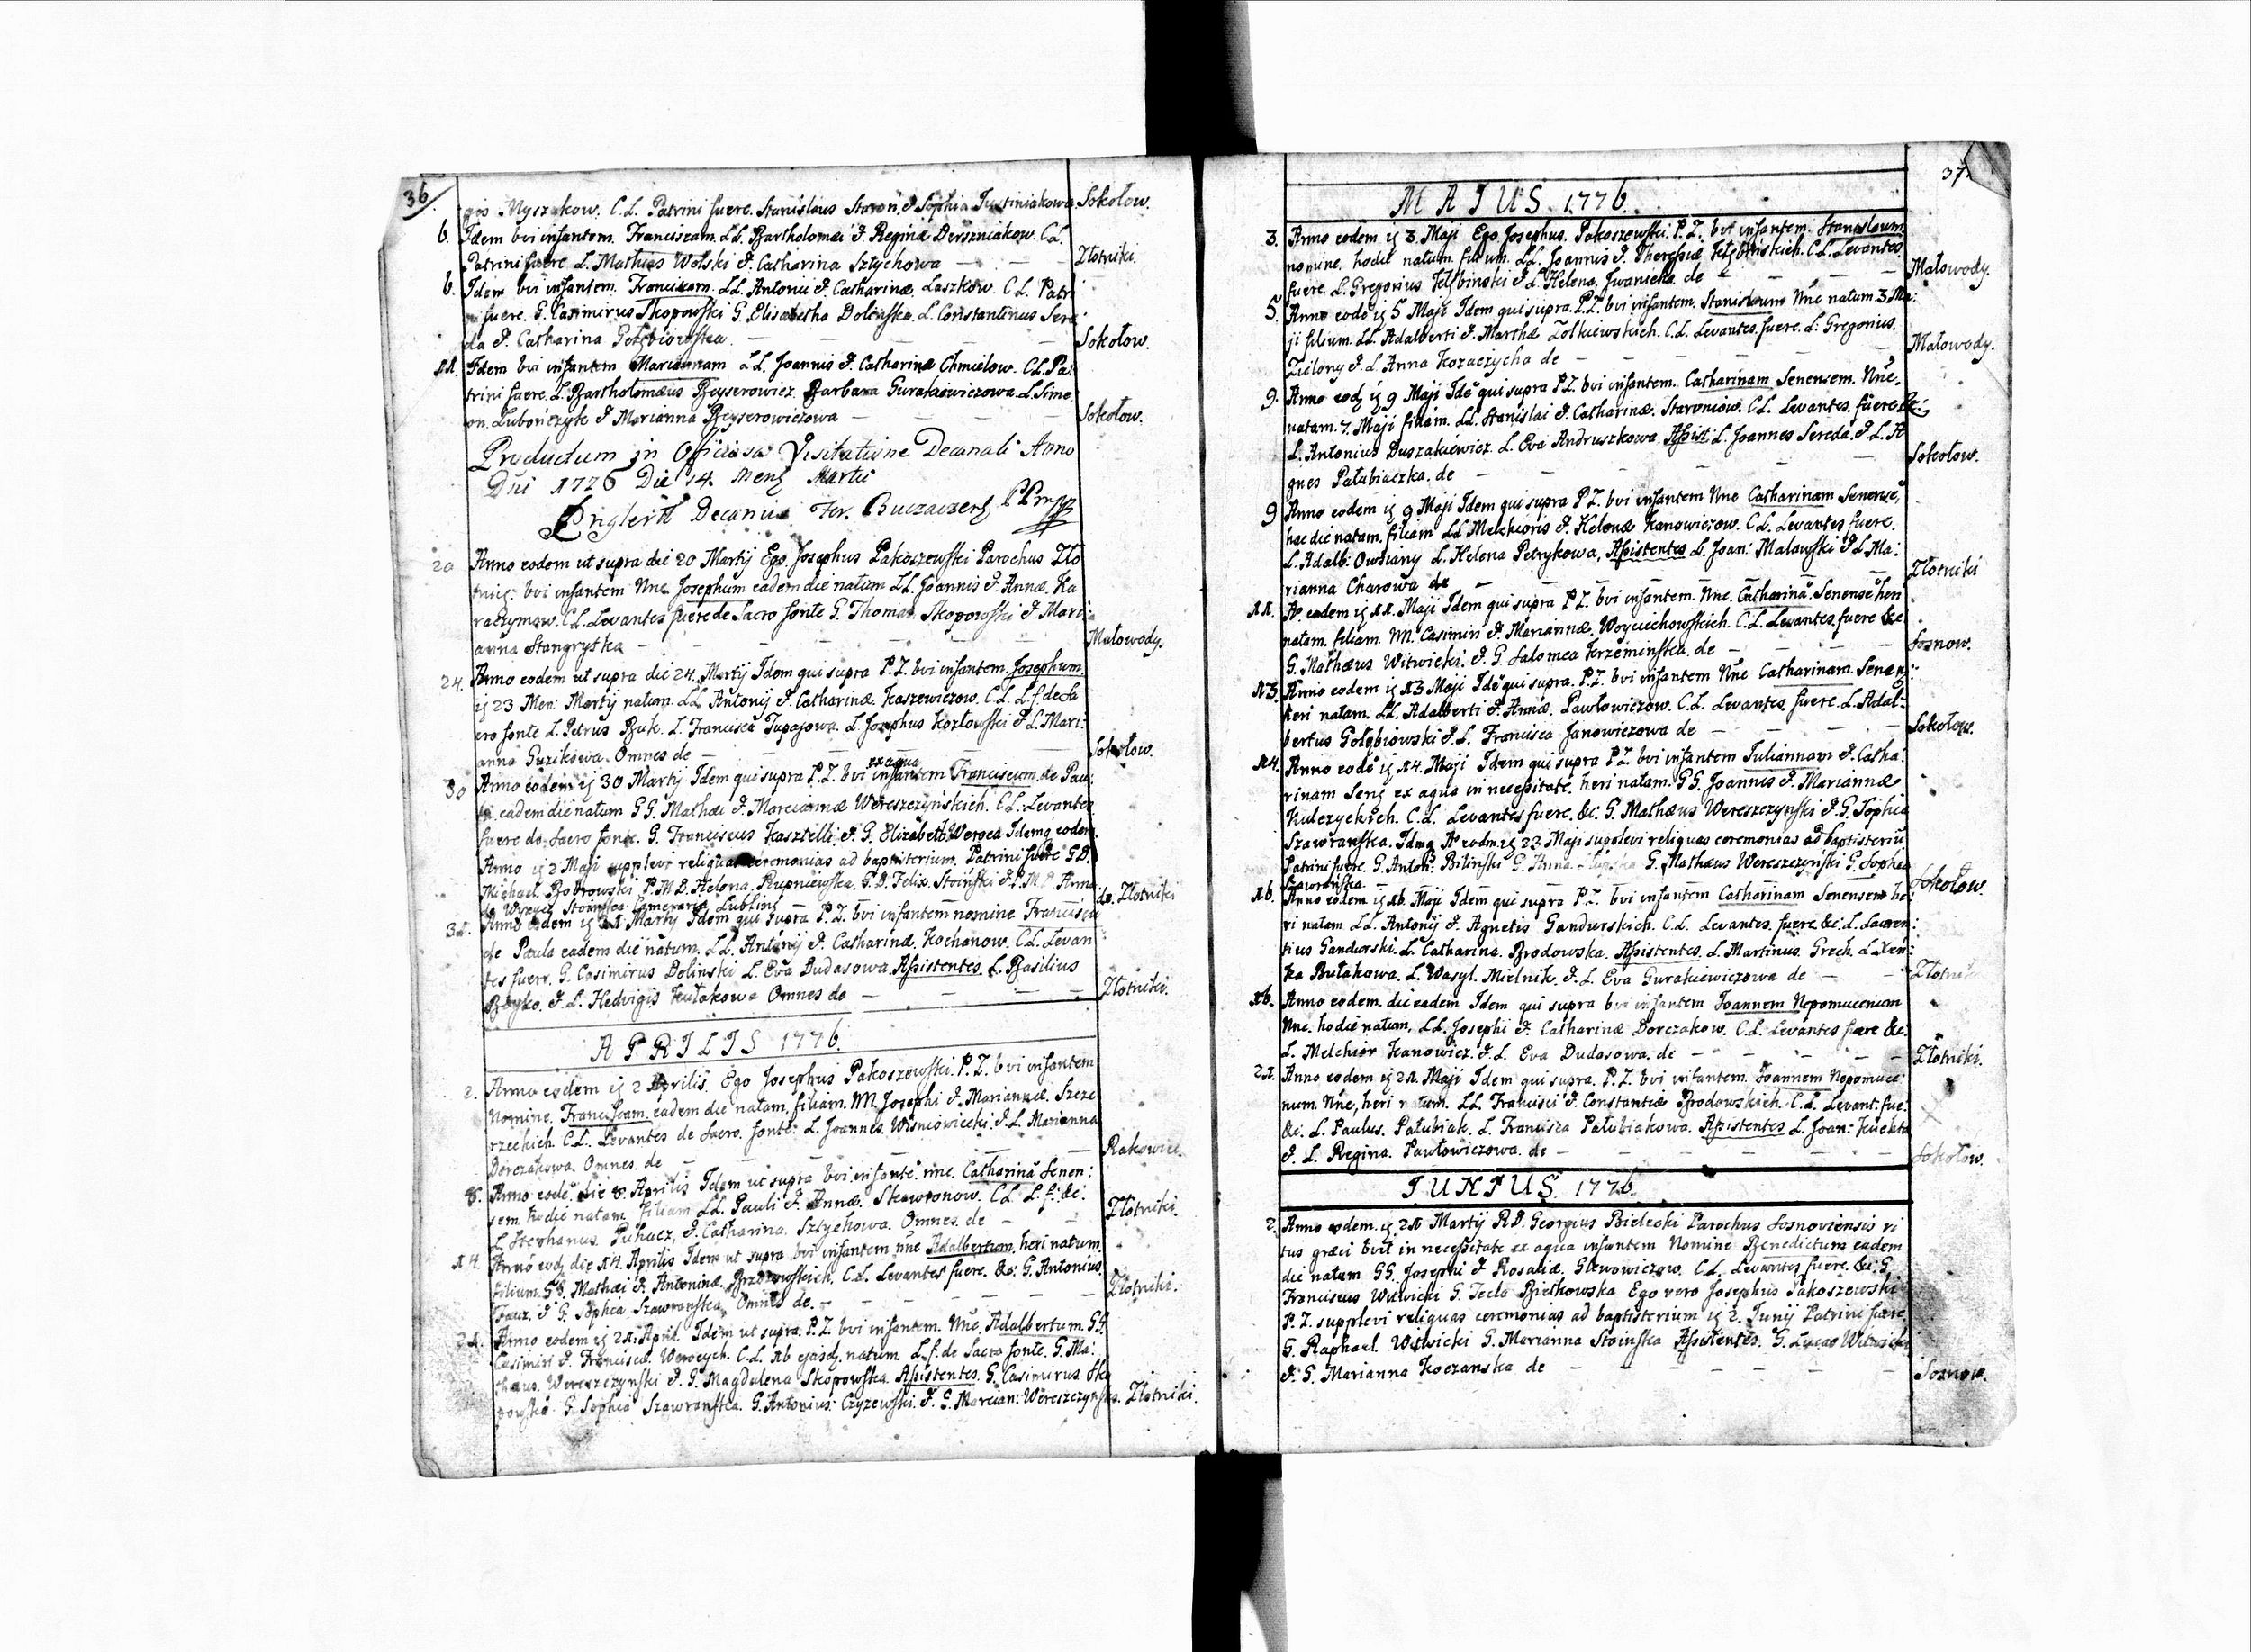 36.
gis Myszakow. C.L. Patrini fuere. Stanislaus Staron, & Sophia Justiniakowa Sokołow.
6. Idem bvi infantem. Franciscam. LL. Bartholomæi & Reginæ Derszniakow. C.L.
Patrini fuere L. Mathias Wolski & Catharina Sztychowa — Złotniki.
6. Idem bvi infantem. Franciscam. LL. Antonii & Catharinæ. Laszkow. C L. Patri
ni fuere. G. Casimirus Skopowski G. Elisabetha Dolinska. L. Constantinus Sere
da & Catharina Gołębiowska. — Sokołow.
11. Idem bvi infantem Mariannam LL Joannis & Catharinæ Chmielow. C L. Pa:
trini fuere. L. Bartholomæus Beyserowicz Barbara Gurakiewiczowa L. Sime
on. Lubończyk & Marianna Beyserowiczowa — Sokołow.
Productum in Officiosa Visitatione Decanali Anno
Dni 1776 Die 14. Mens Martii
Decanus For. Buczacens
20 Anno eodem ut supra die 20 Martij Ego Josephus Pakoszewski Parochus Zło
tnic: bvi infantem Nne Josephum eadem die natum LL Joannis & Annæ Ka
raczymow. C L. Levantes fuere de Sacro fonte G. Thomas Skopowski & Mari:
anna Stangrytka — Małowody.
24. Anno eodem ut supra die 24. Martij Idem qui supra P.Z. bvi infantem. Josephum.
23 Men: Martij natum. LL Antonij & Catharinæ. Kaszewiczow. C.L. L.f. de Sa
cro fonte L. Petrus Buk. L. Francisca Tupajowa. L. Josephus Kozłowski & L. Mari:
anna Guzikowa. Omnes de — Sokołow.
ex aqua
30 Anno eodem 30 Martij Idem qui supra P.Z. bvi infantem Franciscum de Pau:
la eadem die natum GG. Mathæi & Mariannæ Wereszczyńskich. C L. Levantes
fuere de Sacro fonte. G. Franciscus Kasztelli & G. Elizabeth Weroca Idemq eodem
Anno 2 Maji supplevi reliquas ceremonias ad baptisterium. Patrini fuere G.D.
Michael. Bobrowski P.M.D. Helena. Rupniewska. G. D. Felix. Stoiński & P.M.D Anna
Stoinska Lublins de. Złotniki
31. Anno eodem 31 Martij Idem qui supra P.Z. bvi infantem nomine Francisca
de Paula eadem die natum. LL. Antonij & Catharinæ. Kochanow. C.L. Levan
tes fuere. G. Casimirus Dolinski L. Eva Dudasowa. Assistentes. L. Basilius
Boyko. & L. Hedvigis Kułakowa Omnes de — Złotniki.
APRILIS 1776.
2. Anno eodem 2 Aprilis. Ego Josephus Pakoszewski. P.Z. bvi infantem
Nomine. Franciscam. eadem die natam. filiam. NN. Josephi & Mariannæ. Szcze
rzeckich. C.L. Levantes de Sacro. fonte: L. Joannes. Wiśniowiecki. & L. Marianna
Dorczakowa. Omnes. de — Rakowiec.
8. Anno eode. die 8. Aprilis Idem ut supra bvi. infante. nne. Catharina Senen:
sem. hodie natam. filiam LL. Pauli & Annæ. Skowronow. C.L. L.f. &c.
L. Stephanus. Puhacz, & Catharina. Sztychowa. Omnes. de — Złotniki.
14. Anno eod die 14. Aprilis Idem ut supra bvi infantem nne Adalbertum. heri natum.
filium. GG. Mathæi & Antoninæ. Brzozowskich. C.L. Levantes fuere. &c: G. Antonius.
Faur. & G. Sophia Szawranska. Omnes de. — Złotniki.
21. Anno eodem 21. April. Idem ut supra. P.Z. bvi infantem. Nne. Adalbertum. GG.
Casimiri & Franciscæ. Werocych. C.L. 16 ejusd natum L.f. de Sacro fonte. G. Ma:
thæus. Wereszczynski & G. Magdalena Skopowska. Assistentes. G. Casimirus Sko
powski. G. Sophia Szawranska. G. Antonius: Czyzewski. & G. Marcian: Wereszczynska. Złotniki.
37.
MAJUS 1776.
3. Anno eodem 3. Maji Ego Josephus. Pakoszewski. P.Z. bvi infantem. Stanislaum
nomine. hodie natum. filium. LL. Joannis & Theresiæ Kłębinskich. C.L. Levantes.
fuere. L. Gregorius & L. Helena. Iwanicka. de — Małowody.
5. Anno eode 5 Maji Idem qui supra. P.Z. bvi infantem. Stanislaum Nne natum. 3 Ma:
ji filium. LL. Adalberti & Marthæ Zołkiewskich. C.L. Levantes. fuere. L: Gregorius.
Zielony & L. Anna Kozaczycha de — Małowody.
9. Anno eod 9 Maji Ide qui supra P.Z. bvi infantem. Catharinam Senensem. Nne.
natam. 7. Maji filiam. LL. Stanislai & Catharinæ. Staroniow. C.L. Levantes. fuere &c:
L. Antonius Duszakiewicz. L. Eva Andruszkowa. Assist: L. Joannes Sereda. & L. A
gnes Pałubiaczka. de — Sokołow.
9 Anno eodem 9 Maji Idem qui supra P.Z. bvi infantem Nne Catharinam Senense,
hac die natam. filiam LL Melchioris & Helenæ Kanowiczow. C L. Levantes fuere.
L. Adalb: Owsiany L. Helena Petrykowa, Assistentes L. Joan: Malawski & L. Ma:
rianna Charowa de — Złotniki
11. Ao eodem 11. Maji Idem qui supra P.Z. bvi infantem. Nne. Catharina. Senense heri
natam. filiam. NN. Casimiri & Mariannæ. Woyciechowskich. C.L. Levantes. fuere &c
G. Mathæus Witwicki. & G. Salomea Krzeminska. de — Sosnow.
13. Anno eodem 13 Maji Ide qui supra. P.Z. bvi infantem Nne Catharinam. Senen
heri natam. LL. Adalberti & Annæ. Pawłowiczow. C.L. Levantes. fuere. L. Adal:
bertus Gołębiowski & L. Francisca Janowiczowa de — Sokołow.
14. Anno eode 14. Maji Idem qui supra P.Z. bvi infantem Juliannam & Catha:
rinam Sens ex aqua in necessitate. heri natam. GG. Joannis & Mariannæ
Kulczyckich. C.L. Levantes fuere. &c. G. Mathæus Wereszczynski & G. Sophia
Szawranska. Idmq Ao eodm. 23 Maji supplevi reliquas ceremonias ad baptisteriu
Patrini fuere. G. Anton: Bilinski G. Anna G. Mathæus Wereszczynski G. Sophia
Szawranska — Sokołow.
16. Anno eodem 16. Maji Idem qui supra P.Z. bvi infantem Catharinam Senensem he:
ri natam LL. Antonij & Agnetis Gandurskich. C.L. Levantes. fuere. &c: L. Lauren:
tius Gandurski. L. Catharina. Brodowska. Assistentes. L. Martinus. Grech. L Xen:
ka Bułakowa. L. Wasyl. Mielnik. & L. Eva Gurakiewiczowa de — Złotniki
16. Anno eodem. die eadem Idem qui supra bvi infantem Joannem Nepomucenum
Nne. hodie natum. LL. Josephi & Catharinæ Dorczakow. C.L. Levantes fuere &c:
L. Melchior Kanowicz. & L. Eva Dudasowa. de — Złotniki.
21. Anno eodem 21. Maji Idem qui supra. P.Z. bvi infantem. Joannem Nepomuce:
num. Nne, heri natum. LL. Francisci & Constantiæ Brodowskich. C.L. Levant. fue:
&c: L. Paulus. Pałubiak. L. Francisca Pałubiakowa. Assistentes L. Joan: Kuchta
& L. Regina. Pawłowiczowa. de — Sokołow.
JUNIUS 1776.
2. Anno eodem. 21 Martij R.D. Georgius Bielecki Parochus Sosnoviensis ri
tus græci bvit in necessitate ex aqua infantem Nomine Benedictum eadem
die natum GG. Josephi & Rosaliæ. Glewowiczow. C.L. Levantes fuere. &c: G.
Franciscus Witwicki G. Tecla Bietkowska Ego vero Josephus Pakoszewski
P.Z. supplevi reliquas ceremonias ad baptisterium 2. Junij Patrini fuere.
G. Raphael. Witwicki G. Marianna Stoinska Assistentes. G. Lucas Witwicki
& G. Marianna Koczanska de — Soznow.